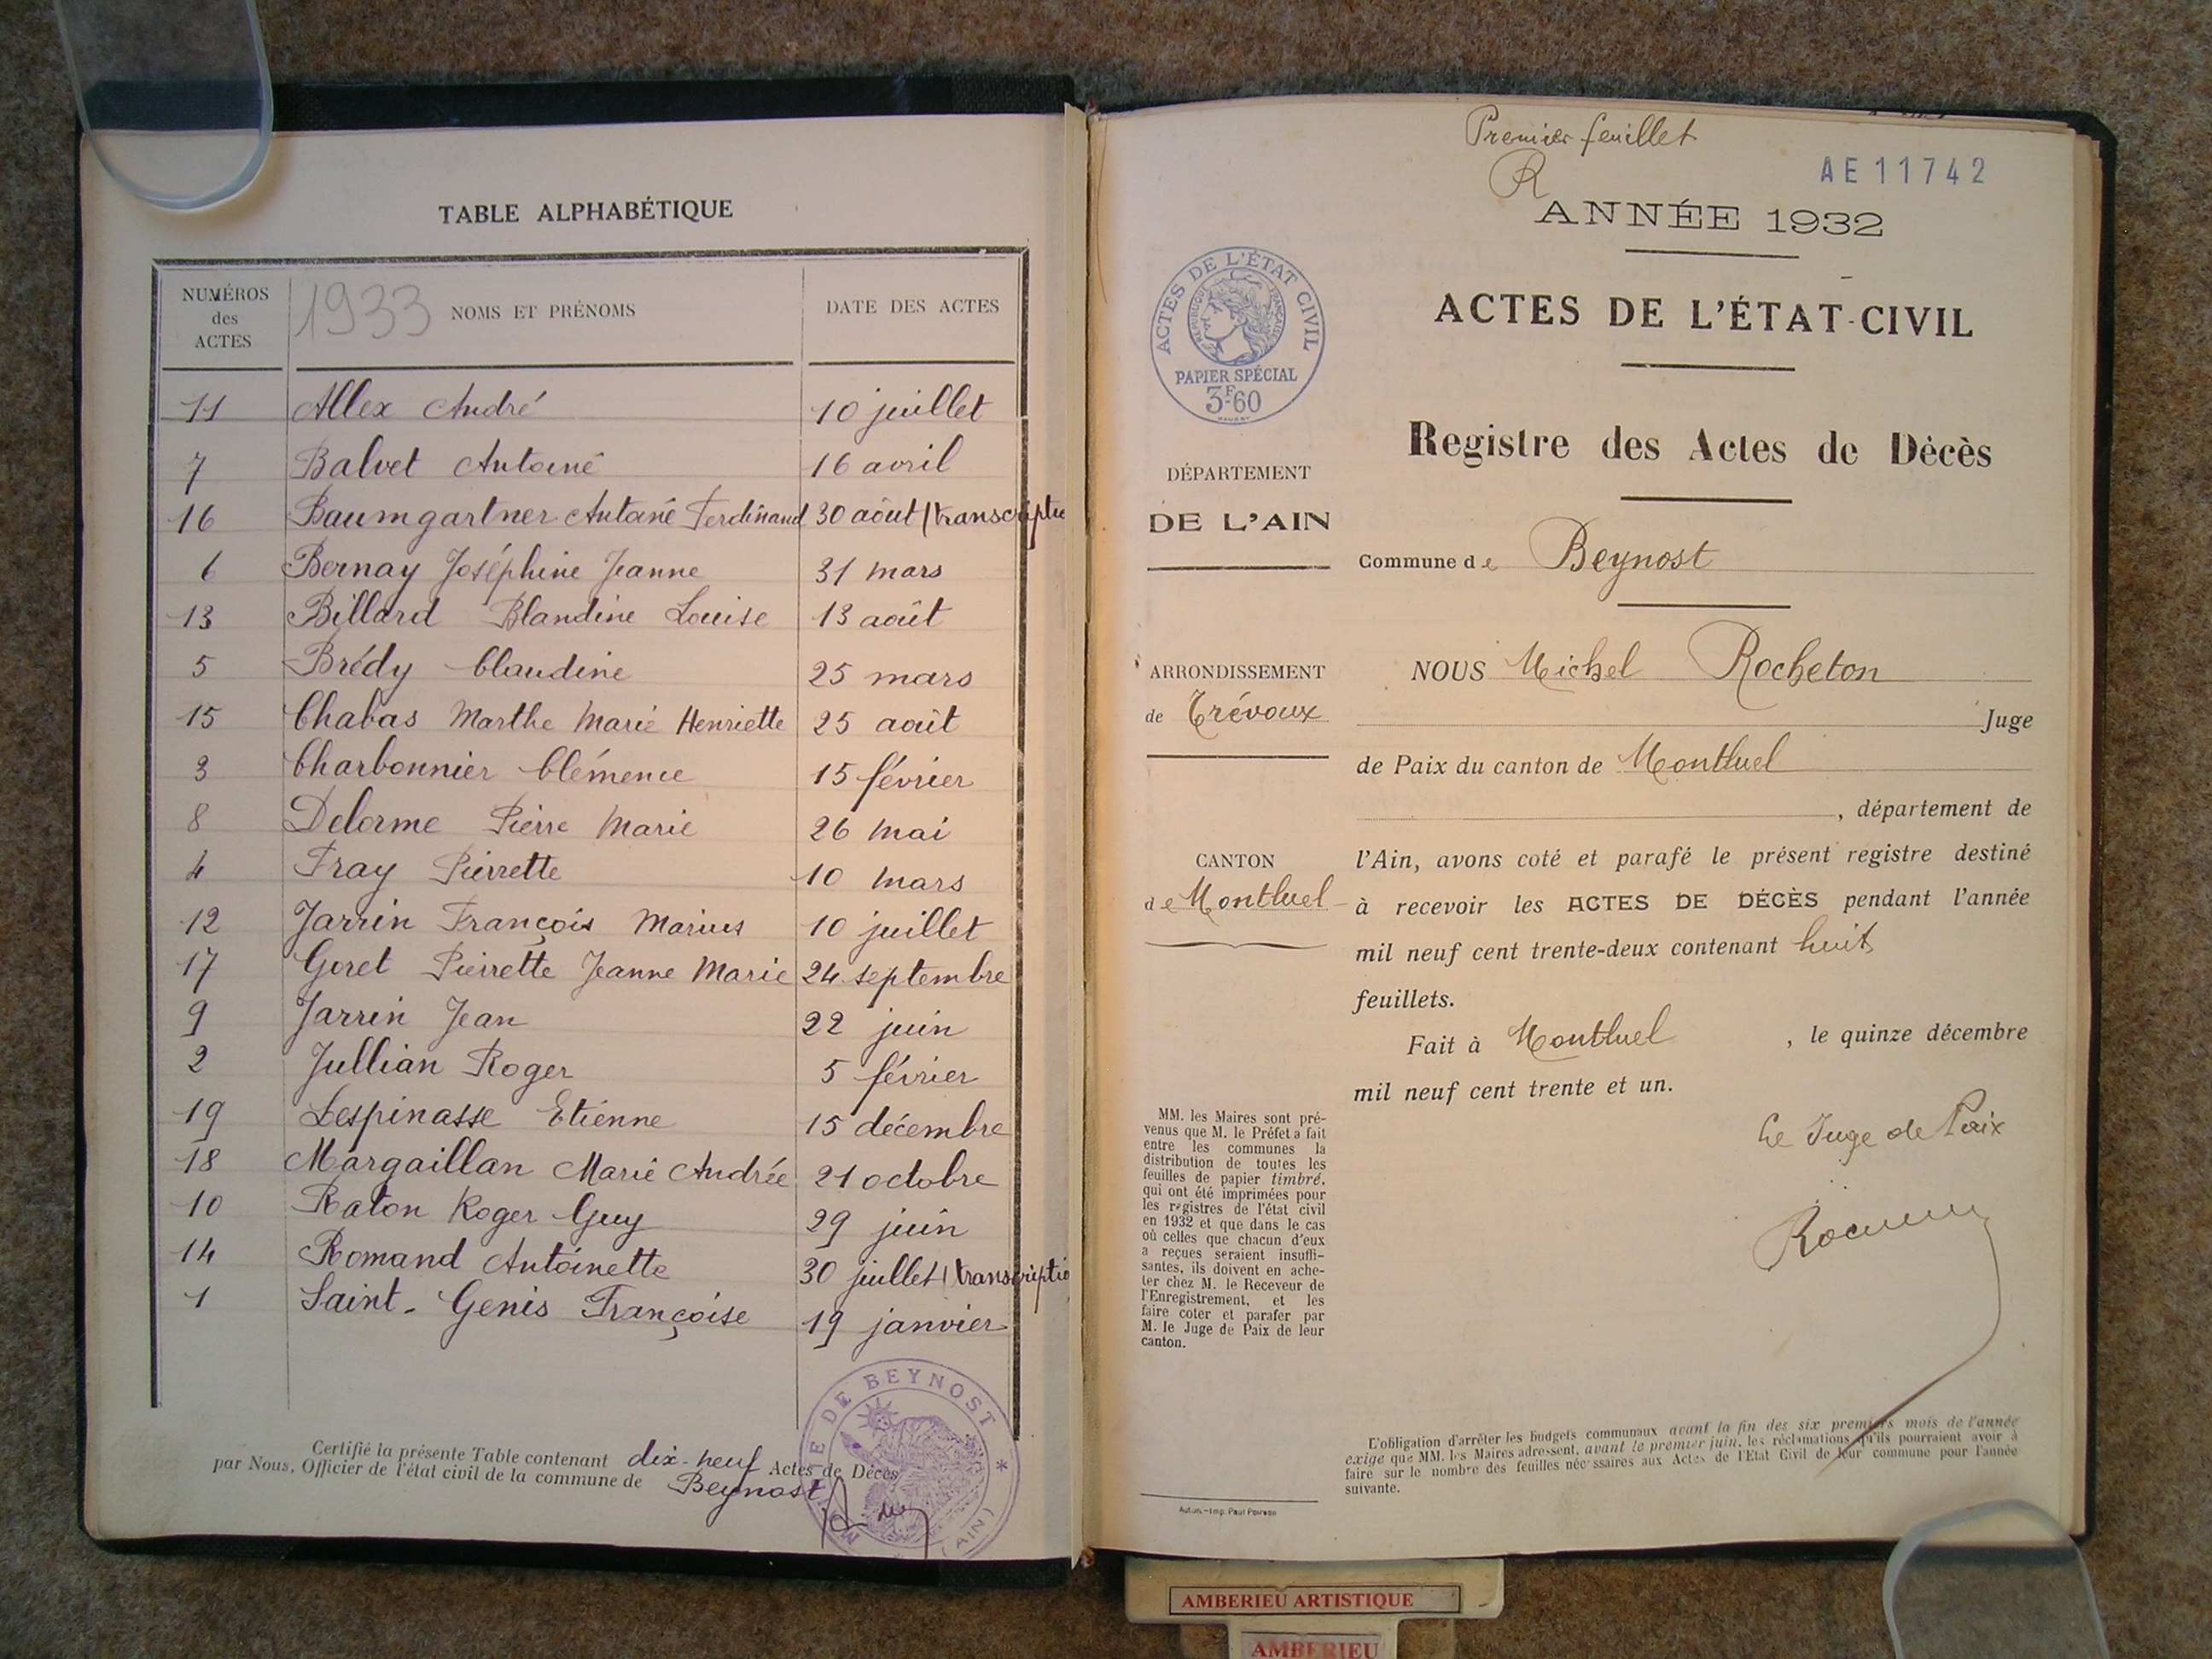 TABLE ALPHABÉTIQUE
NUMÉROS des ACTES 1933 NOMS ET PRÉNOMS DATE DES ACTES
11 Allex André 10 juillet
7 Balvet Antoine 16 avril
16 Baumgartner Antoine Ferdinand 30 août (transcription
6 Bernay Joséphine Jeanne 31 mars
13 Billard Blandine Louise 13 août
5 Brédy Claudine 25 mars
15 Chabas Marthe Marie Henriette 25 août
3 Charbonnier Clémence 15 février
8 Delorme Pierre Marie 26 mai
4 Fray Pierrette 10 mars
12 Jarrin François Marius 10 juillet
17 Goret Pierrette Jeanne Marie 24 septembre
9 Jarrin Jean 22 juin
2 Jullian Roger 5 février
19 Lespinasse Etienne 15 décembre
18 Margaillan Marie Andrée 21 octobre
10 Raton Roger Guy 29 juin
14 Romand Antoinette 30 juillet (transcription
1 Saint-Genis Françoise 19 janvier
Certifié la présente Table contenant dix-neuf Actes de Décès
par Nous, Officier de l'état civil de la commune de Beynost
DE BEYNOST
* (AIN)
Premier feuillet
R
AE11742
ANNÉE 1932
ACTES DE L'ÉTAT CIVIL
RÉPUBLIQUE FRANÇAISE
PAPIER SPÉCIAL
3F60
ACTES DE L'ÉTAT-CIVIL
Registre des Actes de Décès
DÉPARTEMENT
DE L'AIN
Commune de Beynost
ARRONDISSEMENT
de Trévoux
CANTON
de Montluel
NOUS Michel Rocheton
Juge
de Paix du canton de Montluel
, département de
l'Ain, avons coté et parafé le présent registre destiné
à recevoir les ACTES DE DÉCÈS pendant l'année
mil neuf cent trente-deux contenant huit
feuillets.
Fait à Montluel , le quinze décembre
mil neuf cent trente et un.
Le Juge de Paix
MM. les Maires sont pré-
venus que M. le Préfet a fait
entre les communes la
distribution de toutes les
feuilles de papier timbré,
qui ont été imprimées pour
les registres de l'état civil
en 1932 et que dans le cas
où celles que chacun d'eux
a reçues seraient insuffi-
santes, ils doivent en ache-
ter chez M. le Receveur de
l'Enregistrement, et les
faire coter et parafer par
M. le Juge de Paix de leur
canton.
L'obligation d'arrêter les budgets communaux avant la fin des six premiers mois de l'année
exige que MM. les Maires adressent, avant le premier juin, les réclamations qu'ils pourraient avoir à
faire sur le nombre des feuilles nécessaires aux Actes de l'Etat Civil de leur commune pour l'année
suivante.
Autun. - Imp. Paul Poirson
AMBERIEU ARTISTIQUE
AMBERIEU